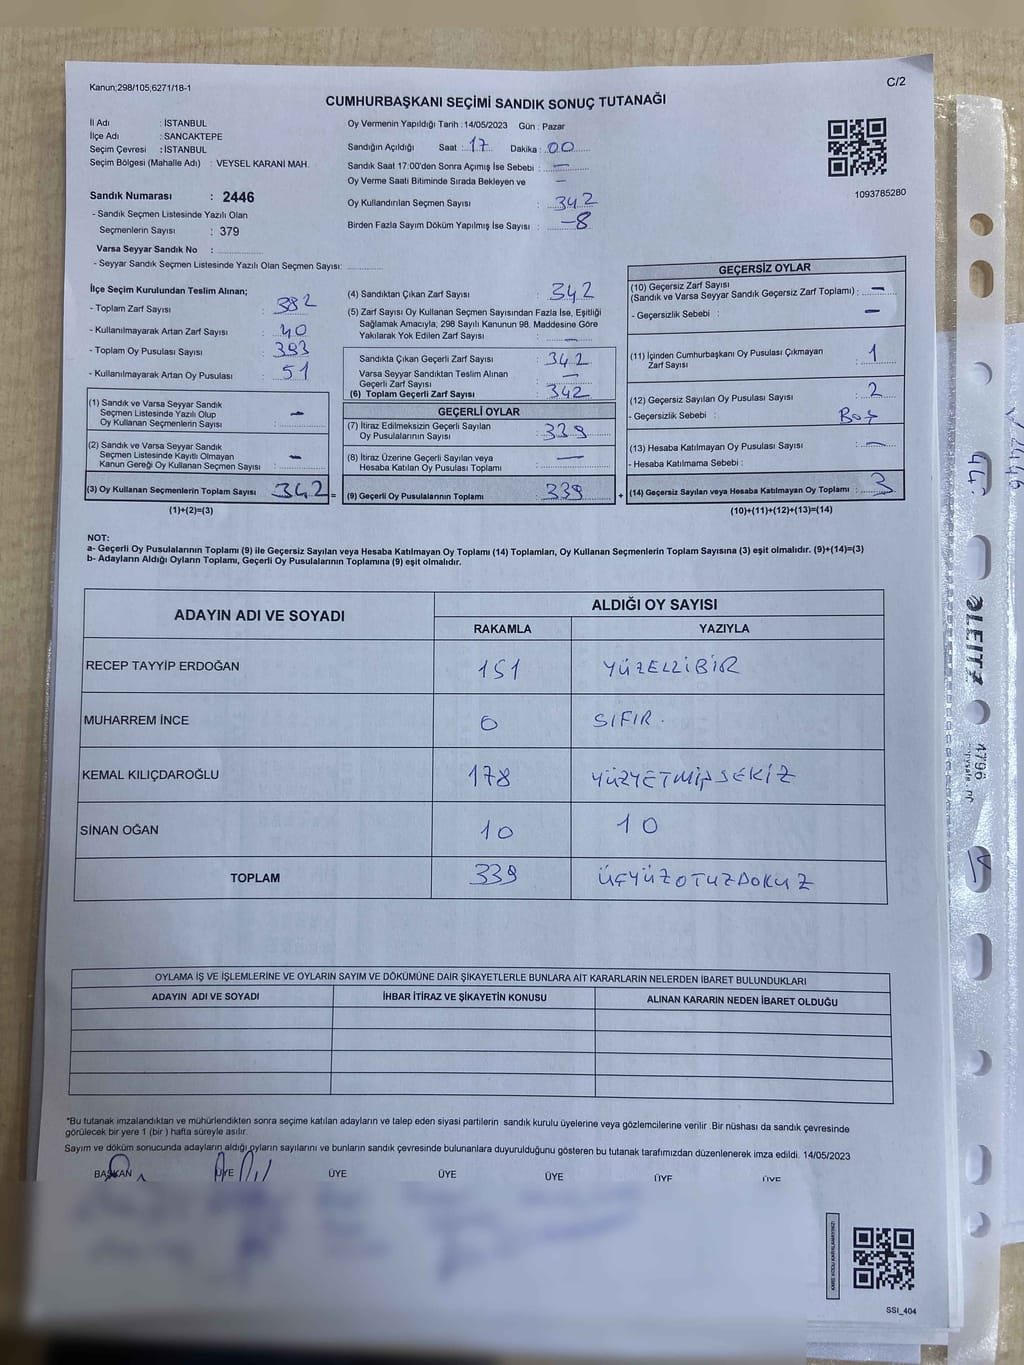 Kanun;298/105;6271/18-1
C/2
CUMHURBAŞKANI SEÇİMİ SANDIK SONUÇ TUTANAĞI
İl Adı : İSTANBUL
İlçe Adı : SANCAKTEPE
Seçim Çevresi : İSTANBUL
Seçim Bölgesi (Mahalle Adı) : VEYSEL KARANI MAH.
Sandık Numarası : 2446
- Sandık Seçmen Listesinde Yazılı Olan
Seçmenlerin Sayısı : 379
Varsa Seyyar Sandık No :
- Seyyar Sandık Seçmen Listesinde Yazılı Olan Seçmen Sayısı:
Oy Vermenin Yapıldığı Tarih : 14/05/2023 Gün : Pazar
Sandığın Açıldığı Saat : 17 Dakika : 00
Sandık Saat 17:00'den Sonra Açımış İse Sebebi : —
Oy Verme Saati Bitiminde Sırada Bekleyen ve —
Oy Kullandırılan Seçmen Sayısı : 342
Birden Fazla Sayım Döküm Yapılmış İse Sayısı : -8
1093785280
İlçe Seçim Kurulundan Teslim Alınan;
- Toplam Zarf Sayısı : 382
- Kullanılmayarak Artan Zarf Sayısı : 40
- Toplam Oy Pusulası Sayısı : 393
- Kullanılmayarak Artan Oy Pusulası : 51
(1) Sandık ve Varsa Seyyar Sandık
Seçmen Listesinde Yazılı Olup
Oy Kullanan Seçmenlerin Sayısı : —
(2) Sandık ve Varsa Seyyar Sandık
Seçmen Listesinde Kayıtlı Olmayan
Kanun Gereği Oy Kullanan Seçmen Sayısı : —
(3) Oy Kullanan Seçmenlerin Toplam Sayısı 342 =
(1)+(2)=(3)
(4) Sandıktan Çıkan Zarf Sayısı : 342
(5) Zarf Sayısı Oy Kullanan Seçmen Sayısından Fazla İse, Eşitliği
Sağlamak Amacıyla; 298 Sayılı Kanunun 98. Maddesine Göre
Yakılarak Yok Edilen Zarf Sayısı : —
Sandıkta Çıkan Geçerli Zarf Sayısı : 342
Varsa Seyyar Sandıktan Teslim Alınan
Geçerli Zarf Sayısı : —
(6) Toplam Geçerli Zarf Sayısı : 342
GEÇERLİ OYLAR
(7) İtiraz Edilmeksizin Geçerli Sayılan
Oy Pusulalarının Sayısı : 339
(8) İtiraz Üzerine Geçerli Sayılan veya
Hesaba Katılan Oy Pusulası Toplamı : —
(9) Geçerli Oy Pusulalarının Toplamı : 339 +
GEÇERSİZ OYLAR
(10) Geçersiz Zarf Sayısı
(Sandık ve Varsa Seyyar Sandık Geçersiz Zarf Toplamı) : —
- Geçersizlik Sebebi : —
(11) İçinden Cumhurbaşkanı Oy Pusulası Çıkmayan
Zarf Sayısı : 1
(12) Geçersiz Sayılan Oy Pusulası Sayısı : 2
- Geçersizlik Sebebi : Boş
(13) Hesaba Katılmayan Oy Pusulası Sayısı : —
- Hesaba Katılmama Sebebi :
(14) Geçersiz Sayılan veya Hesaba Katılmayan Oy Toplamı : 3
(10)+(11)+(12)+(13)=(14)
NOT:
a- Geçerli Oy Pusulalarının Toplamı (9) ile Geçersiz Sayılan veya Hesaba Katılmayan Oy Toplamı (14) Toplamları, Oy Kullanan Seçmenlerin Toplam Sayısına (3) eşit olmalıdır. (9)+(14)=(3)
b- Adayların Aldığı Oyların Toplamı, Geçerli Oy Pusulalarının Toplamına (9) eşit olmalıdır.
ADAYIN ADI VE SOYADI ALDIĞI OY SAYISI
RAKAMLA YAZIYLA
RECEP TAYYİP ERDOĞAN 151 YÜZELLİBİR
MUHARREM İNCE 0 SIFIR.
KEMAL KILIÇDAROĞLU 178 YÜZYETMİŞSEKİZ
SİNAN OĞAN 10 10
TOPLAM 339 ÜÇYÜZOTUZDOKUZ
OYLAMA İŞ VE İŞLEMLERİNE VE OYLARIN SAYIM VE DÖKÜMÜNE DAİR ŞİKAYETLERLE BUNLARA AİT KARARLARIN NELERDEN İBARET BULUNDUKLARI
ADAYIN ADI VE SOYADI İHBAR İTİRAZ VE ŞİKAYETİN KONUSU ALINAN KARARIN NEDEN İBARET OLDUĞU
*Bu tutanak imzalandıktan ve mühürlendikten sonra seçime katılan adayların ve talep eden siyasi partilerin sandık kurulu üyelerine veya gözlemcilerine verilir .Bir nüshası da sandık çevresinde
görülecek bir yere 1 (bir ) hafta süreyle asılır.
Sayım ve döküm sonucunda adayların aldığı oyların sayılarını ve bunların sandık çevresinde bulunanlara duyurulduğunu gösteren bu tutanak tarafımızdan düzenlenerek imza edildi. 14/05/2023
BAŞKAN ÜYE ÜYE ÜYE ÜYE ÜYE ÜYE
SSI_404
LEITZ
4796